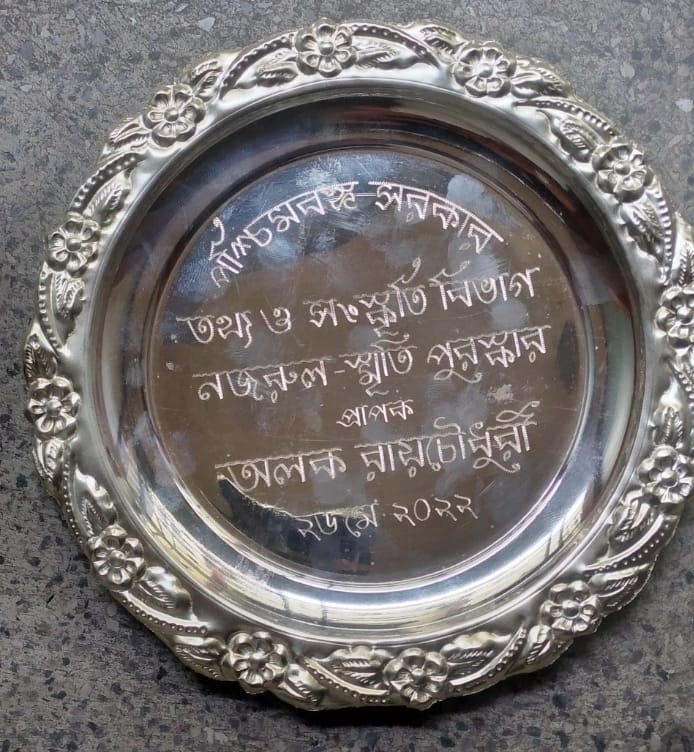 পশ্চিমবঙ্গ সরকার
তথ্য ও সংস্কৃতি বিভাগ
নজরুল-স্মৃতি পুরস্কার
প্রাপক
অলক রায়চৌধুরী
২৬ মে ২০২২